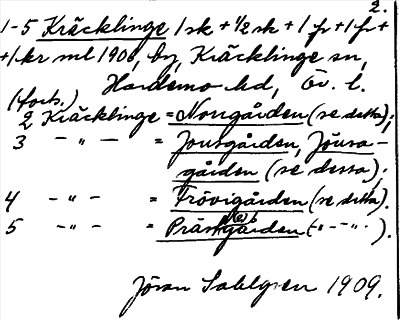 2.
1-5 Kräcklinge 1 sk + 1/2 sk + 1 fr + 1 fr +
+ 1 kr ml 1906, by, Kräcklinge sn,
Hardemo hd, Ör. l.
(forts.)
2 Kräcklinge = Norrgården (se detta);
3 — „ — = Joursgården, Jöusa-
gården (se dessa);
4 — „ — = Frövigården (se detta).
5 — „ — = Präst(e)gården (— „ —).
Jöran Sahlgren 1909.